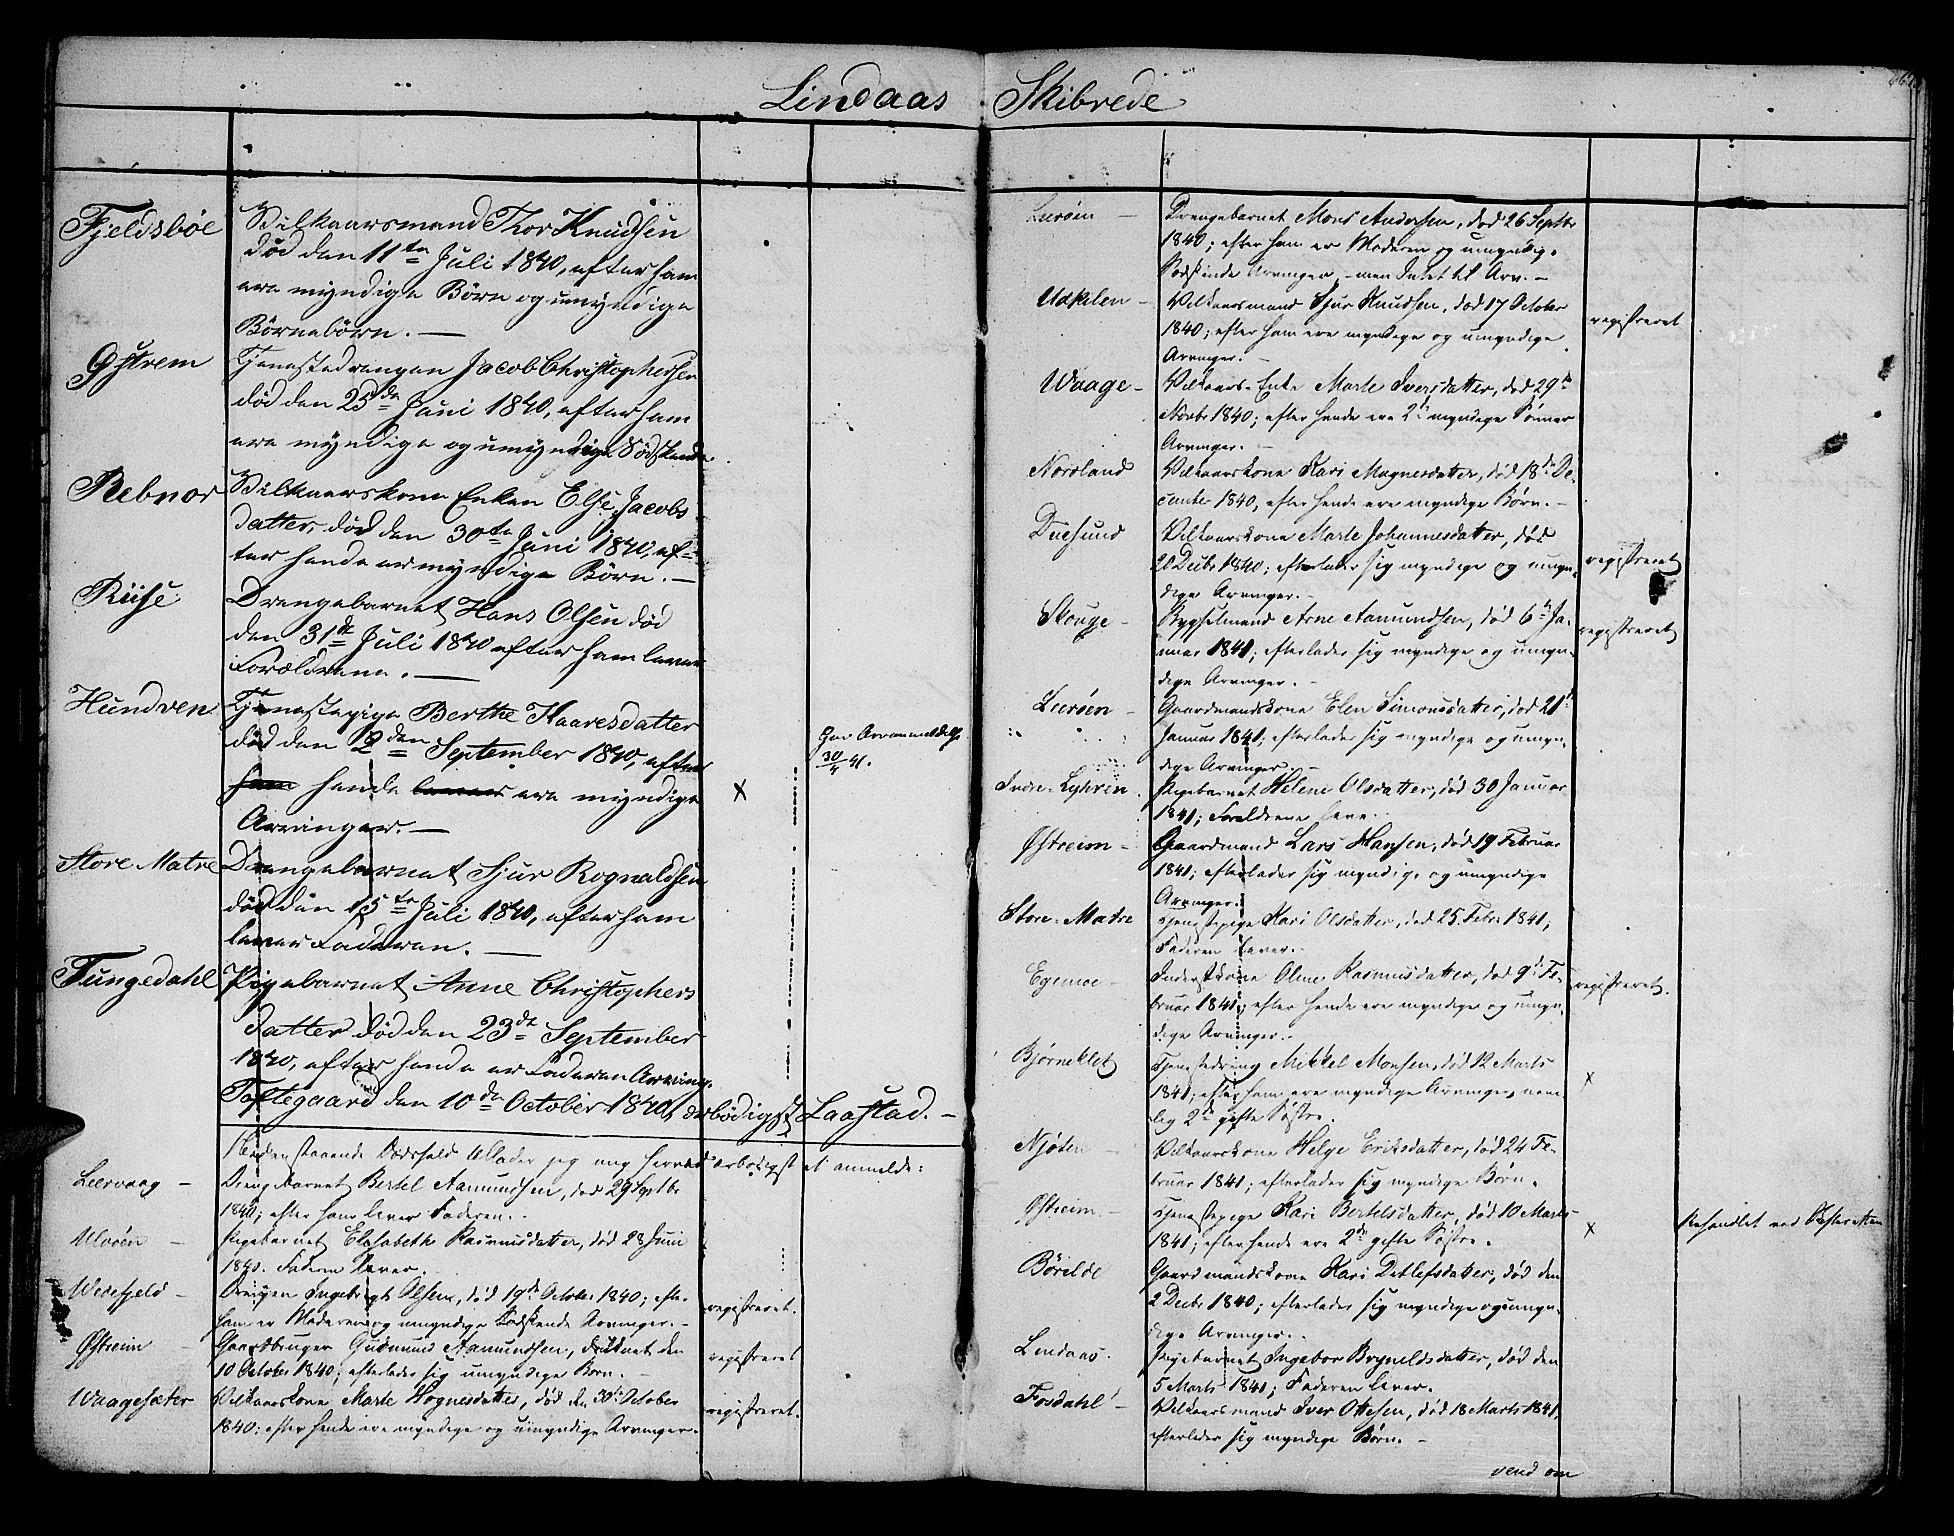 Lindaas Skibrede
Fjeldsbøe
Vilkaarsmand Thor Knudsen
død den 11te Juli 1840, efter ham
ere myndige Børn og umyndige
Børnebørn. —
Østrem
Tjenestedrengen Jacob Christophersen
død den 25de Juni 1840, efter ham
ere myndige og umyndige Södskende
Rebnor
Vilkaarskone Enken Else Jacobs
datter, død den 30te Juni 1840, ef-
ter hende er myndige Børn. —
Riise
Drengebarnet Hans Olsen død
den 31de Juli 1840 efter ham lever
Forældrene. —
Hundven
Tjenestepige Berthe Kaaresdatter
død den 12den September 1840, efter
ham hende lever ere myndige
Arvinger. —
x
30/4 41.
Store Matre
Drengebarnet Sjur Rognaldsen
død den 15te Juli 1840, efter ham
lever Faderen. —
Tungedahl
Pigebarnet Anne Christophers
datter død den 23de September
1840, efter hende er Faderen Arving.
Toftegaard den 10de October 1840, ærbödigst Laastad. —
Nedenstaaende Dødsfald tillader jeg mig herved ærbødigst at anmelde:
Leervaag —
Drengebarnet Bertel Aamundsen, død 29 Septbr
1840; efter ham lever Faderen.
Ulvøen —
Pigebarnet Elisabeth Rasmusdatter, død 28 Juni
1840. Faderen lever.
Widefjeld —
Drengen Ingebrigt Olsen, död 19de October 1840; efter
ham er Moderen og umyndige Sødskende Arvinger. —
registreret.
Østreim —
Gaardbruger Gudmund Aamundsen, druknet den
10 October 1840; efterlader sig umyndige Børn. —
registreret
Waagesæter
Vilkaarskone Marte Hognesdatter, død den 30te October
1840; efter hende ere myndige og umyndige Arvinger. —
registreret.
Lurøen —
Drengebarnet Mons Andersen, død 26 Septbr
1840; efter ham er Moderen og umyndig.
Sødskende Arvinger, — men Intet til Arv. —
Udkilen —
Vilkaarsmand Sjur Knudsen, død 17 October
1840; efter ham ere myndige og umyndige
Arvinger. —
registreret
Waage —
Vilkaars-Enke Marte Iversdatter, død 29de
Novbr 1840; efter hende ere 2de myndige Sønner
Arvinger. —
Nordland
Vilkaarskone Kari Magnesdatter, død 18de De-
cember 1840, efter hende ere myndige Børn. —
Duesund
Vilkaarskone Marte Johannesdatter, død
20 Decbr 1840; efterlader sig myndige og umyn-
dige Arvinger. —
registreret
Skouge —
Bygselmand Arne Aamundsen, død 6te Ja-
nuar 1841; efterlader sig myndige og umyn-
dige Arvinger. —
registreret
Lurøen —
Gaardmandskone Elen Simonsdatter, død 21de
Januar 1841; efterlader sig myndige og umyn-
dige Arvinger. —
Indre-Lyhren.
Pigebarnet Helene Olsdatter, død 30 Januar
1841; Forældrene leve.
Østreim —
Gaardmand Lars Hansen, død 19 Februar
1841; efterlader sig myndige og umyndige
Arvinger.
Store-Matre
Tjenestepige Kari Olsdatter, død 25. Febr 1841;
Faderen lever.
Egemoe —
Inderstkone Oline Rasmusdatter, død 9de Fe-
bruar 1841; efter hende ere myndige og umyn-
dige Arvinger. —
registreret.
Bjørneklet
Tjenestedreng Mikkel Monsen, død 12 Marts
1841; efter ham ere myndige Arvinger, nem-
lig 2de gifte Søstre.
x
Njøten —
Vilkaarskone Helge Eriksdatter, død 24 Fe-
bruar 1841; efterlader sig myndige Børn.
Østreim —
Tjenestepige Kari Bertelsdatter, død 10 Marts
1841; efter hende ere 2de gifte Søstre.
x
Behandlet ved Skifteretten
Børilde
Gaardmandskone Kari Detlefsdatter, død den
2 Decbr 1840; efterlader sig myndige og umyn-
dige Arvinger.
Lindaas.
Pigebarnet Ingebor Brynildsdatter, død den
5 Marts 1841; Faderen lever.
Fosdahl —
Vilkaarsmand Iver Ottesen, død 18 Marts 1841,
efterlader sig myndige Børn. —
vend om